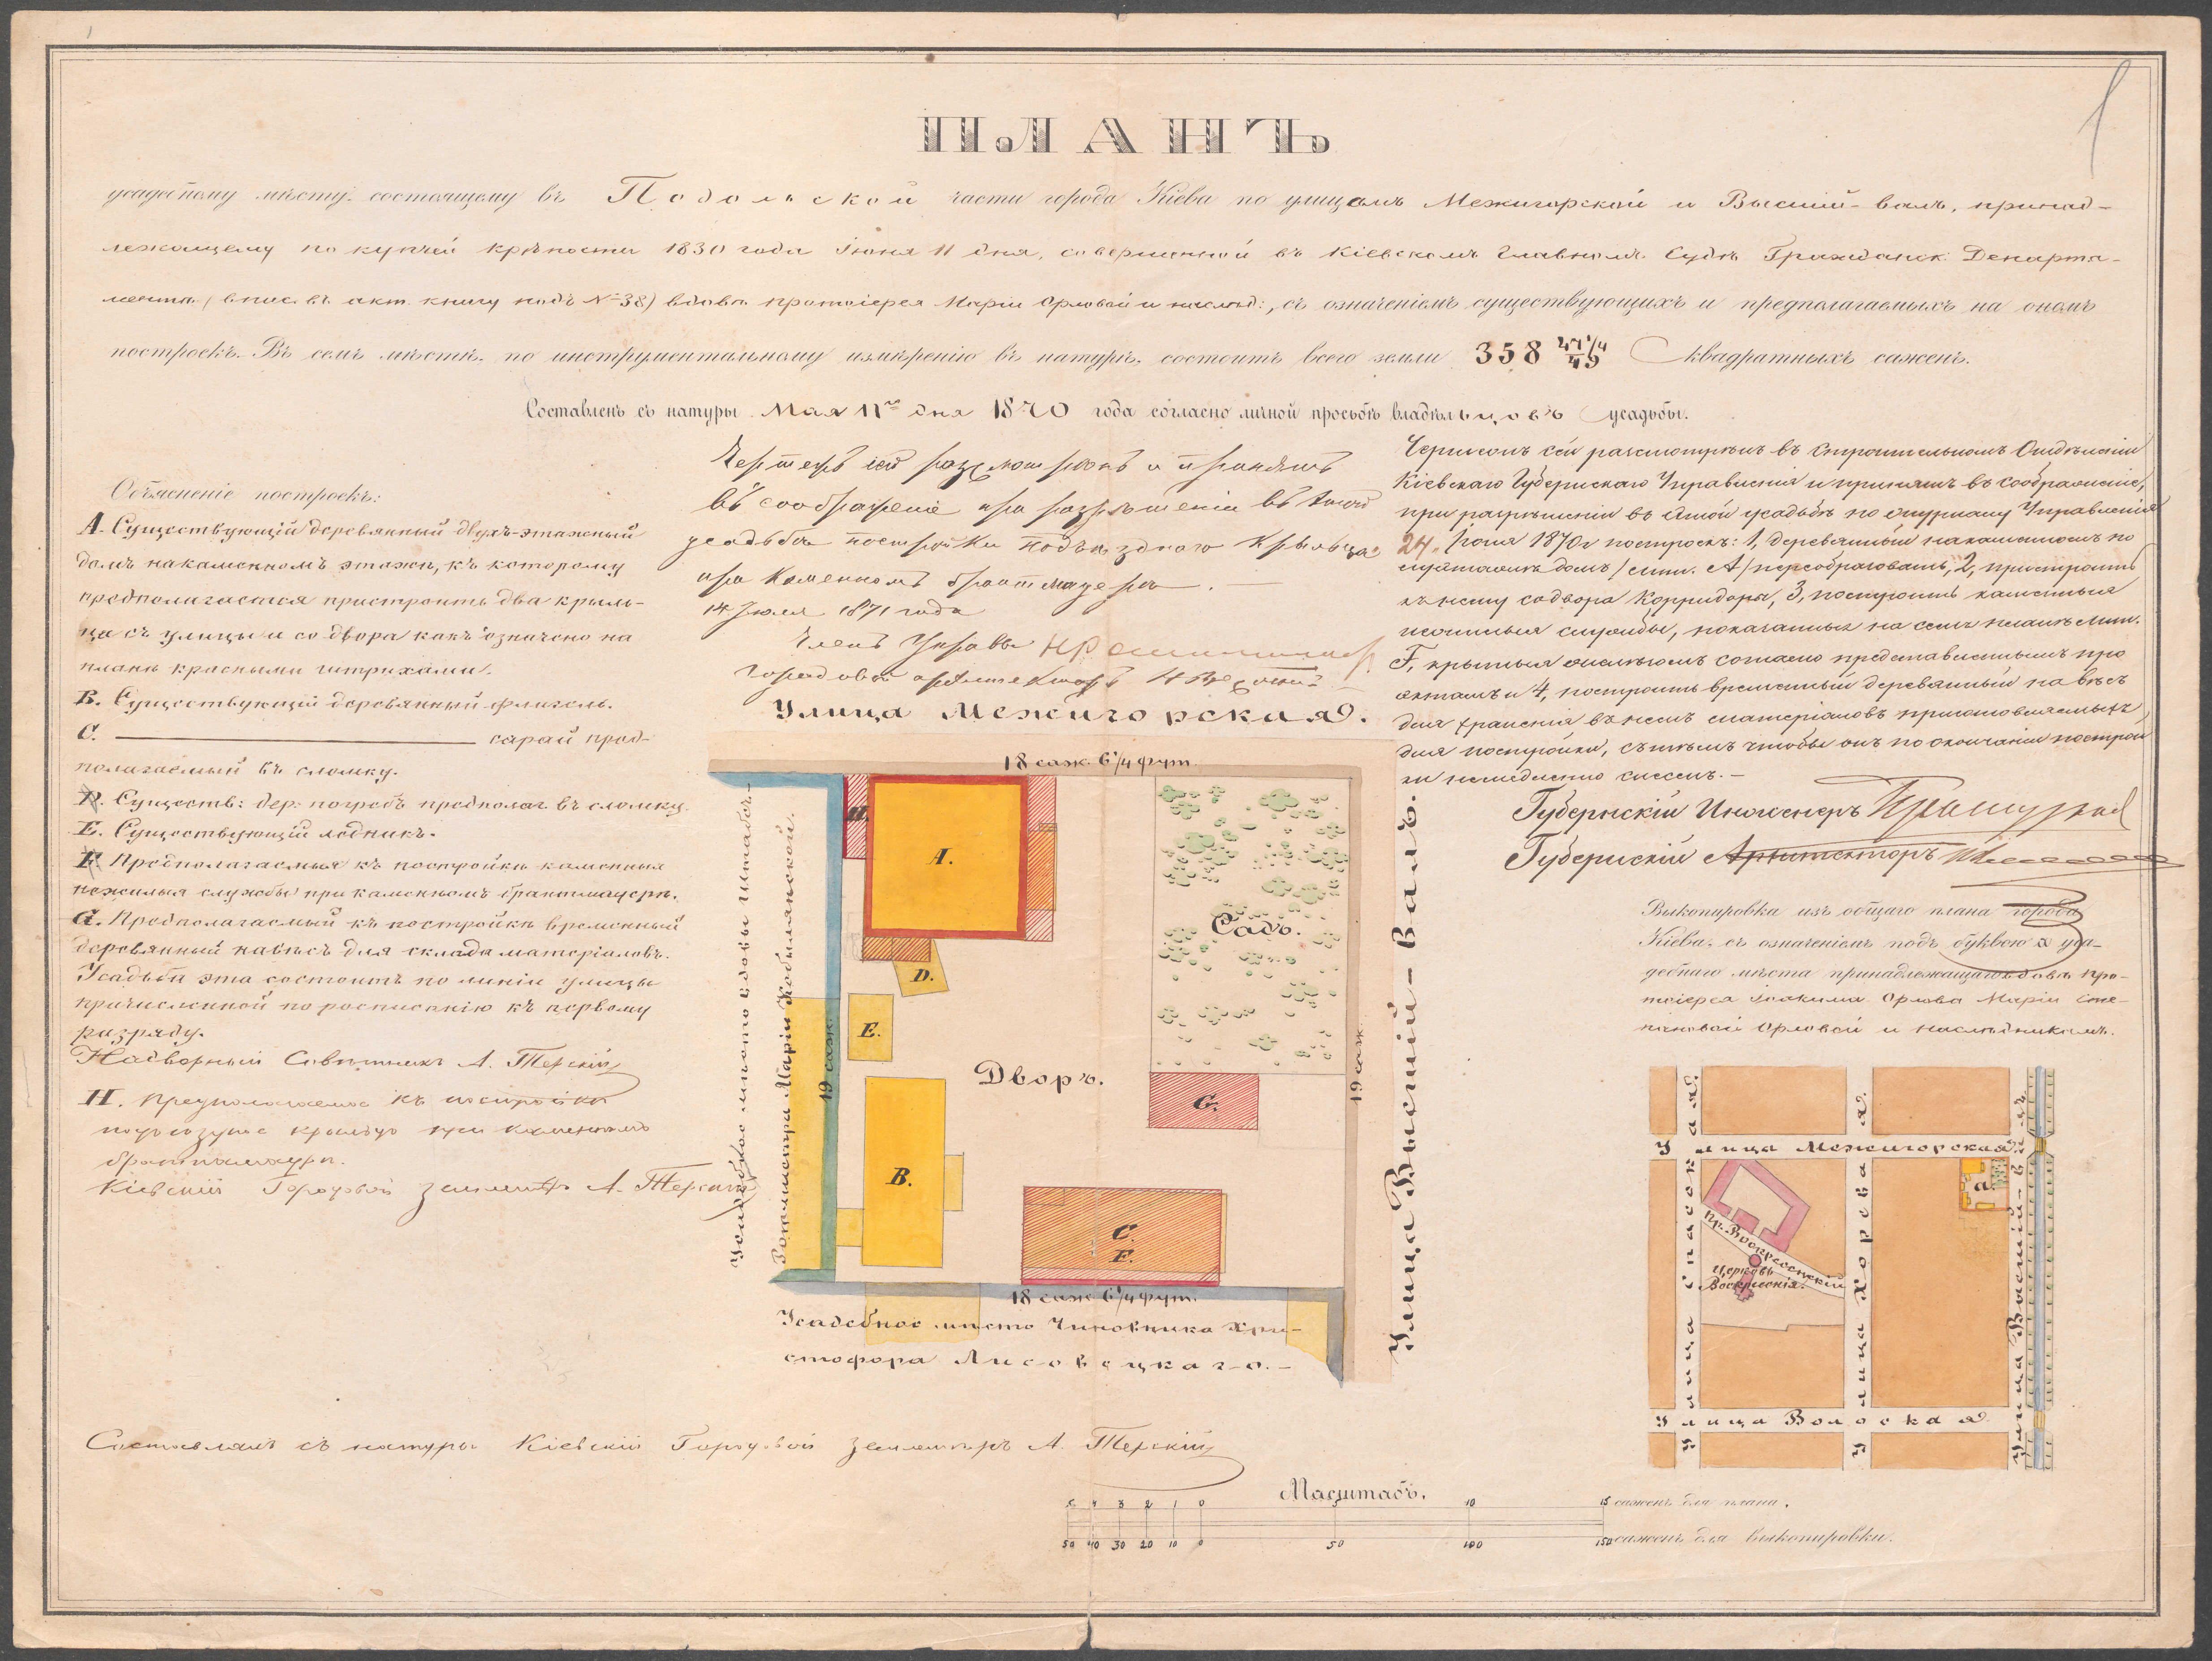 ПЛАНЪ
усадебному мѣсту, состоящему въ Подольской части города Кіева по улицамъ Межигорской и Высшій-валъ, принад-
лежащему по купчей крѣпости 1830 года Іюня 11 дня, совершенной въ Кіевскомъ Главномъ Судѣ Гражданск. Департа-
мента (впис. въ акт. книгу подъ №38) вдовѣ протоіерея Маріи Орловой и наслѣд:, съ означеніемъ существующихъ и предполагаемыхъ на ономъ
построекъ. Въ семъ мѣстѣ, по инструментальному измѣренію въ натурѣ, состоитъ всего земли 358 Квадратныхъ сажень.
Составленъ съ натуры Мая дня 1870 года согласно личной просьбѣ владѣльцовъ усадьбы.
Объясненіе построекъ:
А. Существующій деревянный двухъ-этажный
домъ на каменномъ этажѣ, къ которому
предполагается пристроить два крыль-
ца съ улицы и со двора какъ означено на
планѣ красными штрихами.
В. Существующій деревянный флигель.
С. сарай пред-
полагаемый въ сломку.
D. Существ: дер: погребъ предполаг. въ сломку.
Е. Существующій ледникъ.
F. Предполагаемыя къ постройкѣ каменныя
нежилыя службы при каменномъ брантмауерѣ.
G. Предполагаемый къ постройкѣ временный
деревянный навѣсъ для склада матеріаловъ.
Усадьба эта состоитъ по линіи улицы
причисленной по росписанію къ первому
разряду.
Надворный Совѣтникъ А. Терскій
Н. Предполагаемое къ постройкѣ
подъѣздное крыльцо при каменномъ
брантмауерѣ.
Кіевскій Городовой Землемѣръ А. Терскій
Чертежъ сей разсмотрѣнъ и принятъ
въ соображеніе при разрѣшеніи въ этой
усадьбѣ постройки подъѣзднаго крыльца
при каменномъ брантмауерѣ.
14 Іюля 1871 года
Членъ Управы
Городовой архитекторъ
Чертежъ сей разсмотрѣнъ въ Строительномъ Отдѣленіи
Кіевскаго Губернскаго Управленія и принятъ въ соображеніе,
при разрѣшеніи въ этой усадьбѣ по журналу Управленія
24. Іюля 1870 г построекъ: 1, деревянный на каменномъ по
домъ /лит. А/ переобразовать, 2, пристроить
къ нему со двора Корридоръ, 3, построить каменныя
нежилыя службы, показанныя на семъ планѣ лит.
F, крытыя желѣзомъ согласно представленнымъ про
эктамъ и 4, построить временный деревянный навѣсъ
для храненія въ немъ матеріаловъ приготовляемыхъ
для постройки, съ тѣмъ чтобы онъ по окончаніи построй
ки немедленно снесенъ.-
Губернскій Инженеръ
Губернскій Архитекторъ
Выкопировка изъ общаго плана города
Кіева, съ означеніемъ подъ буквою а уса-
дебнаго мѣста принадлежащаго вдовѣ про-
тоіерея Іоакима Орлова Маріи Сте-
пановой Орловой и наслѣдникамъ.
Улица Межигорская.
18 саж. 6¼ фут.
Н.
А.
D.
Е.
В.
С.
F.
G.
Садъ.
Дворъ.
19 саж.
19 саж.
18 саж 6¼ фут.
Усадебное мѣсто вдовы Штабсъ-
Ротмистра Маріи Кобылянской.
Улица Высшій-Валъ.
Усадебное мѣсто Чиновника Хри-
стофора Лисовецкаго.-
Улица Межигорская
Улица Спасская
Улица Хоревая
Улица Высшій-валъ
Пр. Воскресенскій
Церковь
Воскресенія.
а
Улица Волоская
Составлялъ съ натуры Кіевскій Городовой Землемѣръ А. Терскій
Масштабъ.
5 4 3 2 1 0 5 10 15 сажень для плана.
50 40 30 20 10 0 50 100 150 сажень для выкопировки.